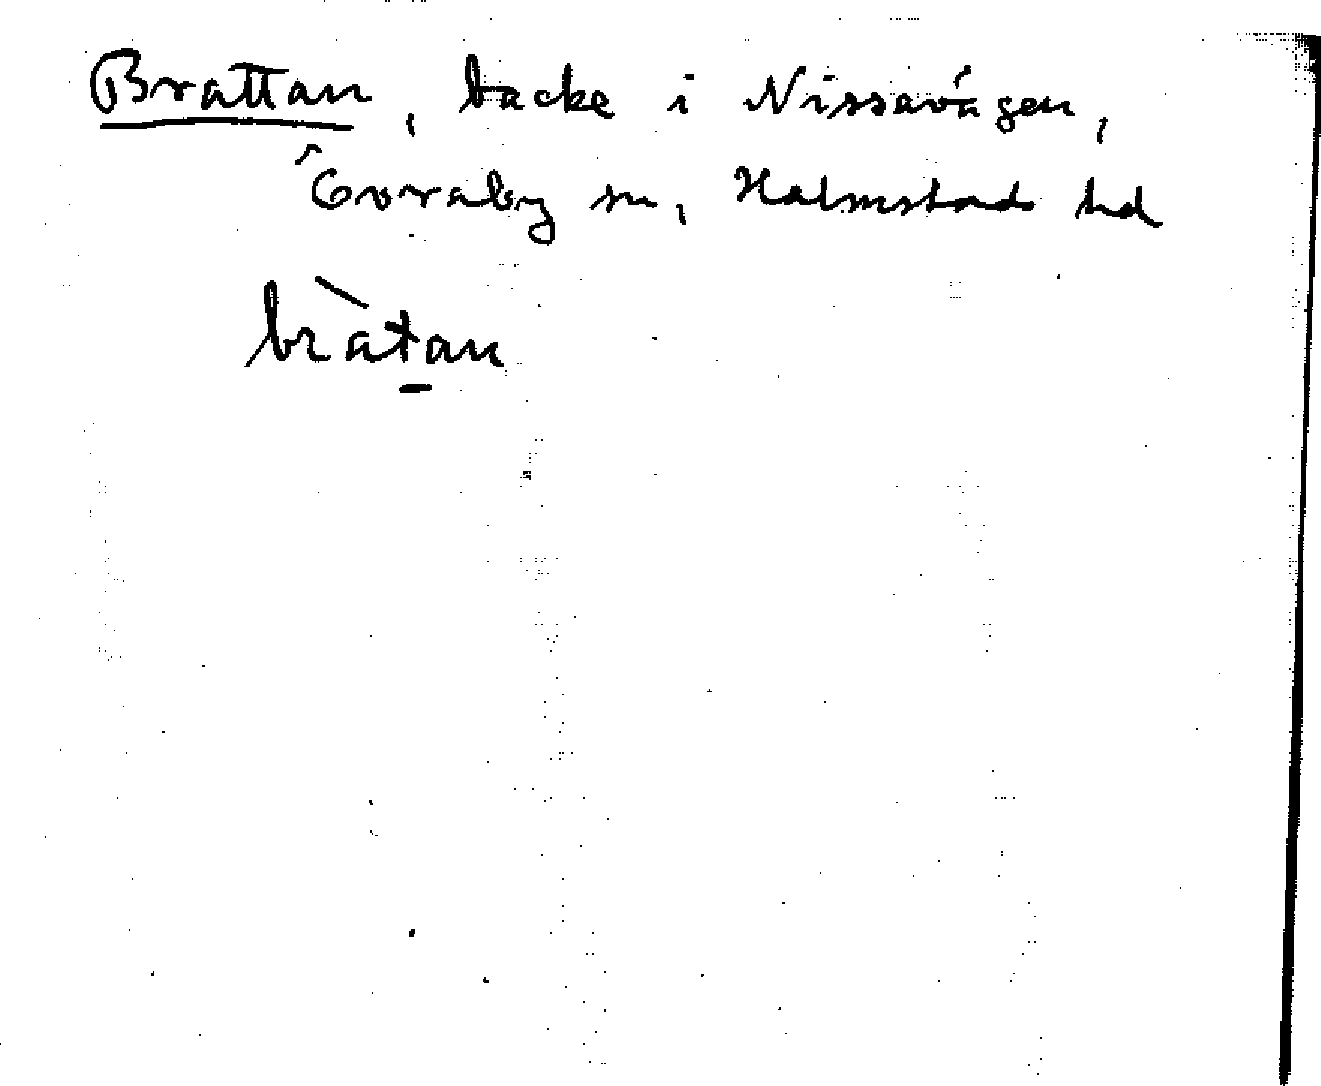 Brattan, backe i Nissavägen,
Övraby sn, Halmstad hd
bràtan